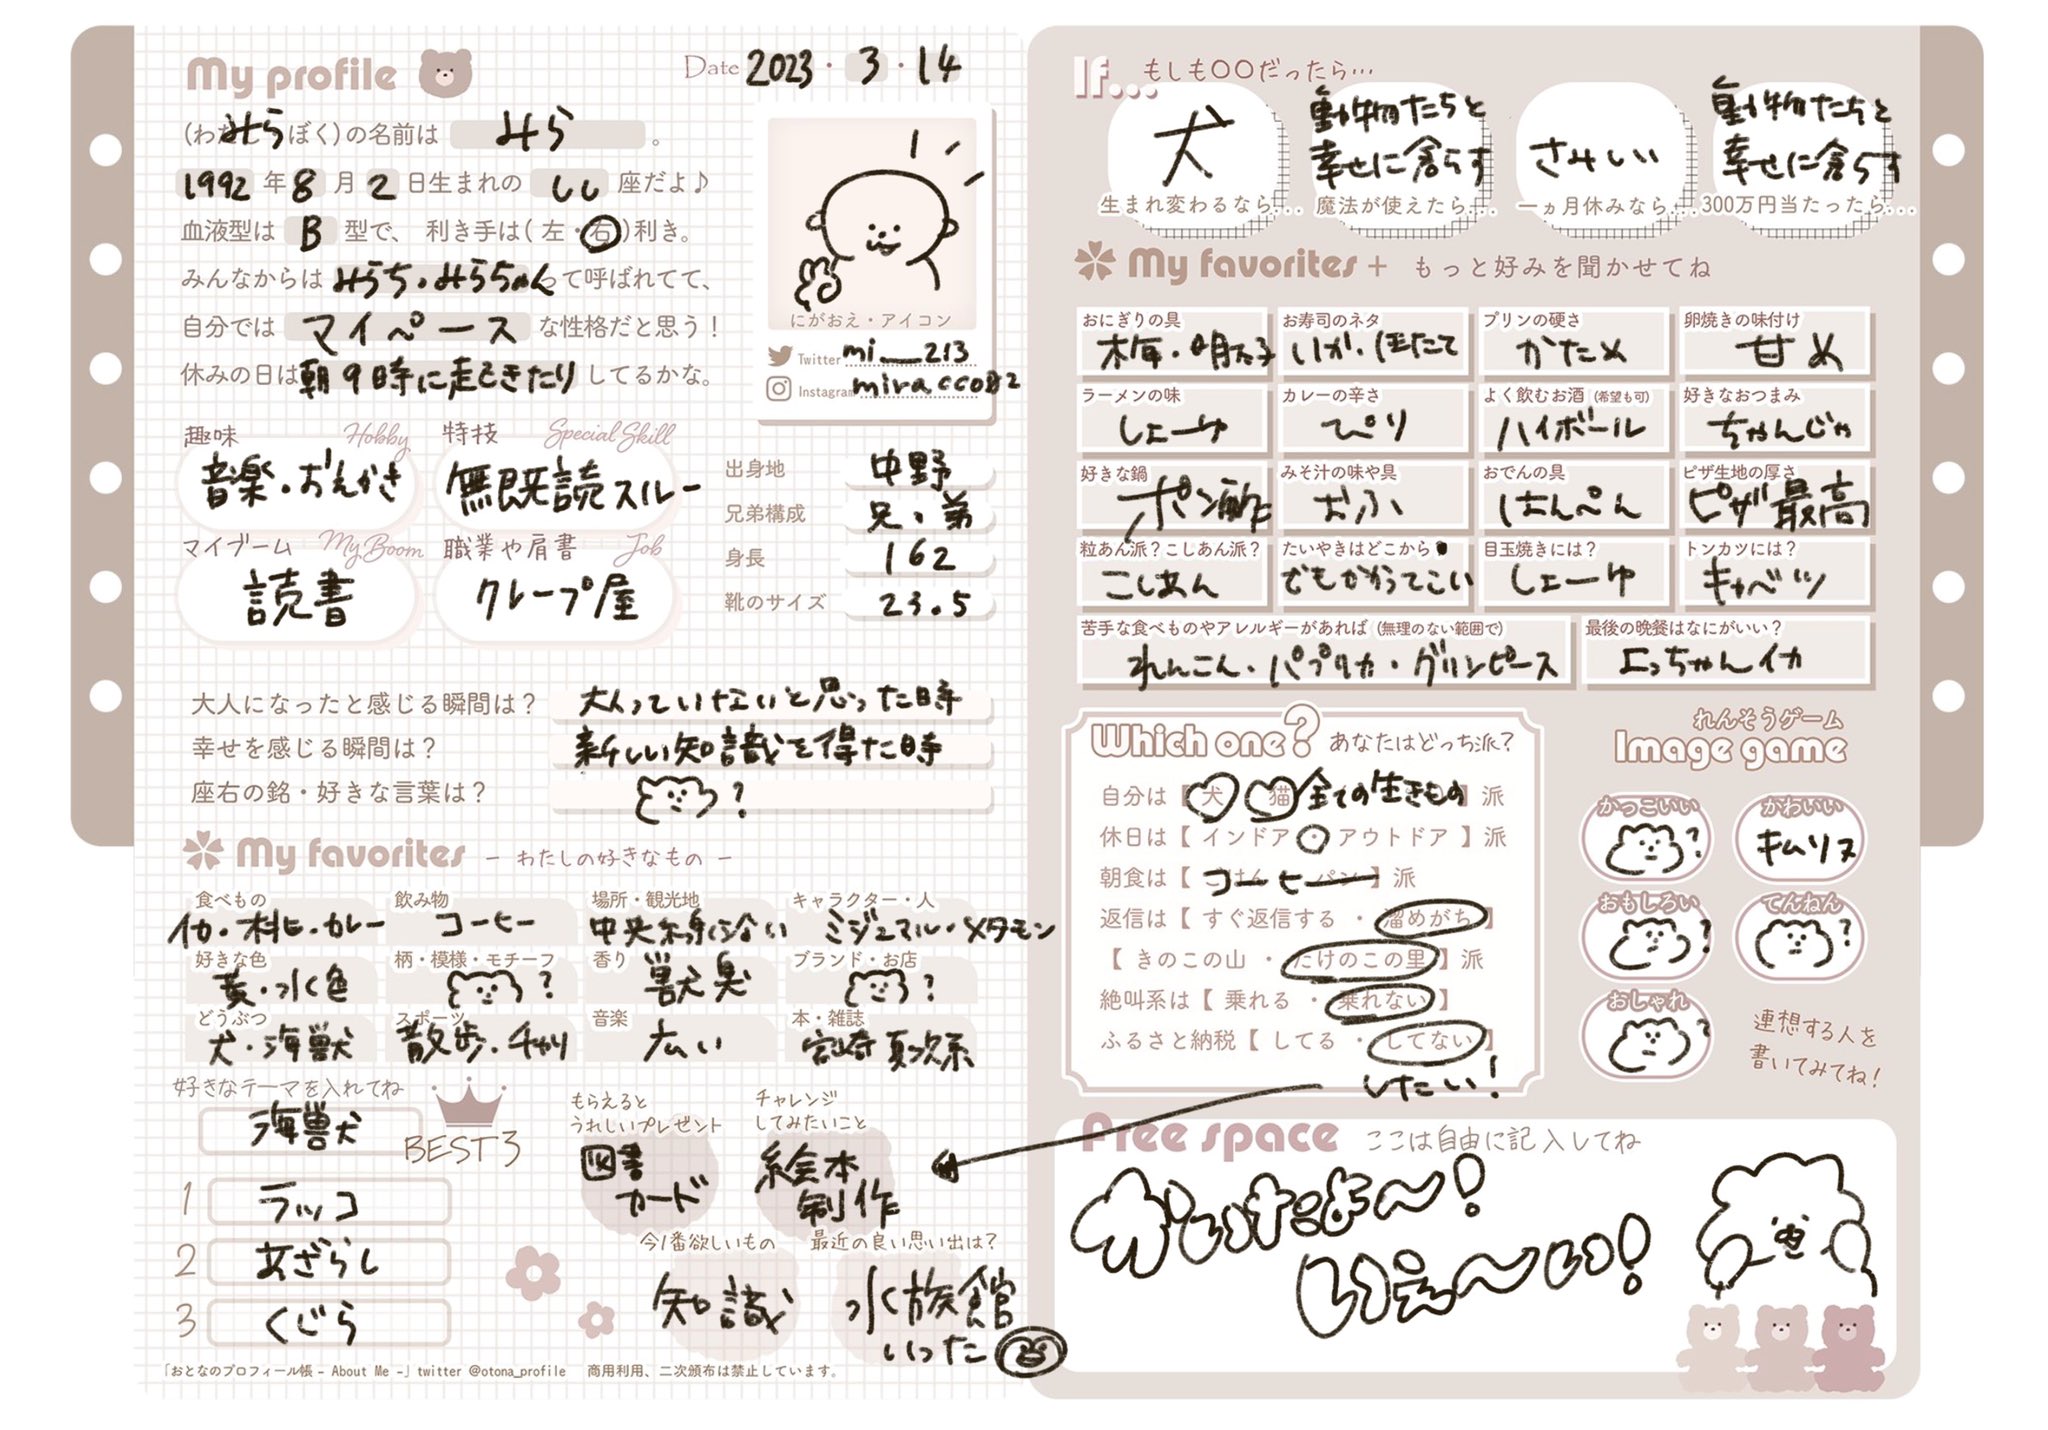 My profile
Date 2023・3・14
(わたし・ぼく)の名前は みら 。
みら
1992年8月2日生まれの しし 座だよ♪
血液型は B 型で、 利き手は(左・右)利き。
みんなからは みらち・みらちゃん って呼ばれてて、
自分では マイペース な性格だと思う！
休みの日は 朝9時に起きたり してるかな。
にがおえ・アイコン
Twitter mi__213
Instagram miracco82
趣味 Hobby
音楽・おえかき
特技 Special Skill
無既読スルー
マイブーム My Boom
読書
職業や肩書 Job
クレープ屋
出身地 中野
兄弟構成 兄、弟
身長 162
靴のサイズ 23.5
大人になったと感じる瞬間は？ 大人っていけないと思った時
幸せを感じる瞬間は？ 新しい知識を得た時
座右の銘・好きな言葉は？ ？
My favorites － わたしの好きなもの －
食べもの イカ・桃・カレー
飲み物 コーヒー
場所・観光地 中央線沿い
キャラクター・人 ミジュマル・メタモン
好きな色 黄・水色
柄・模様・モチーフ ？
香り 獣臭
ブランド・お店 ？
どうぶつ 犬・海獣
スポーツ 散歩・チャリ
音楽 広い
本・雑誌 宮崎夏次系
好きなテーマを入れてね
海獣
BEST3
1 ラッコ
2 あざらし
3 くじら
もらえると
うれしいプレゼント
図書
カード
チャレンジ
してみたいこと
絵本
制作
今1番欲しいもの
知識
最近の良い思い出は？
水族館
いった
「おとなのプロフィール帳 – About Me –」twitter @otona_profile 商用利用、二次頒布は禁止しています。
If... もしも〇〇だったら…
犬
生まれ変わるなら...
動物たちと
幸せに暮らす
魔法が使えたら...
さみしい
一ヵ月休みなら...
動物たちと
幸せに暮らす
300万円当たったら...
My favorites + もっと好みを聞かせてね
おにぎりの具 梅・明太子
お寿司のネタ いか・ほたて
プリンの硬さ かため
卵焼きの味付け 甘め
ラーメンの味 しょーゆ
カレーの辛さ ぴり
よく飲むお酒 (希望も可) ハイボール
好きなおつまみ ちゃんじゃ
好きな鍋 ポン酢
みそ汁の味や具 おふ
おでんの具 はんぺん
ピザ生地の厚さ ピザ最高
粒あん派？こしあん派？ こしあん
たいやきはどこから でもかかってこい
目玉焼きには？ しょーゆ
トンカツには？ キャベツ
苦手な食べものやアレルギーがあれば (無理のない範囲で) れんこん・パプリカ・グリンピース
最後の晩餐はなにがいい？ よっちゃんイカ
Which one? あなたはどっち派？
自分は【 犬 猫 全ての生きもの 】派
休日は【 インドア ・ アウトドア 】派
朝食は【 ごはん パン 】派
コーヒー
返信は【 すぐ返信する ・ 溜めがち 】
【 きのこの山 ・ たけのこの里 】派
絶叫系は【 乗れる ・ 乗れない 】
ふるさと納税【 してる ・ してない 】
したい！
れんそうゲーム
Image game
かっこいい ？
かわいい キムリヌ
おもしろい ？
てんねん ？
おしゃれ ？
連想する人を
書いてみてね！
Free space ここは自由に記入してね
かいけたよ〜！
いえ〜い！